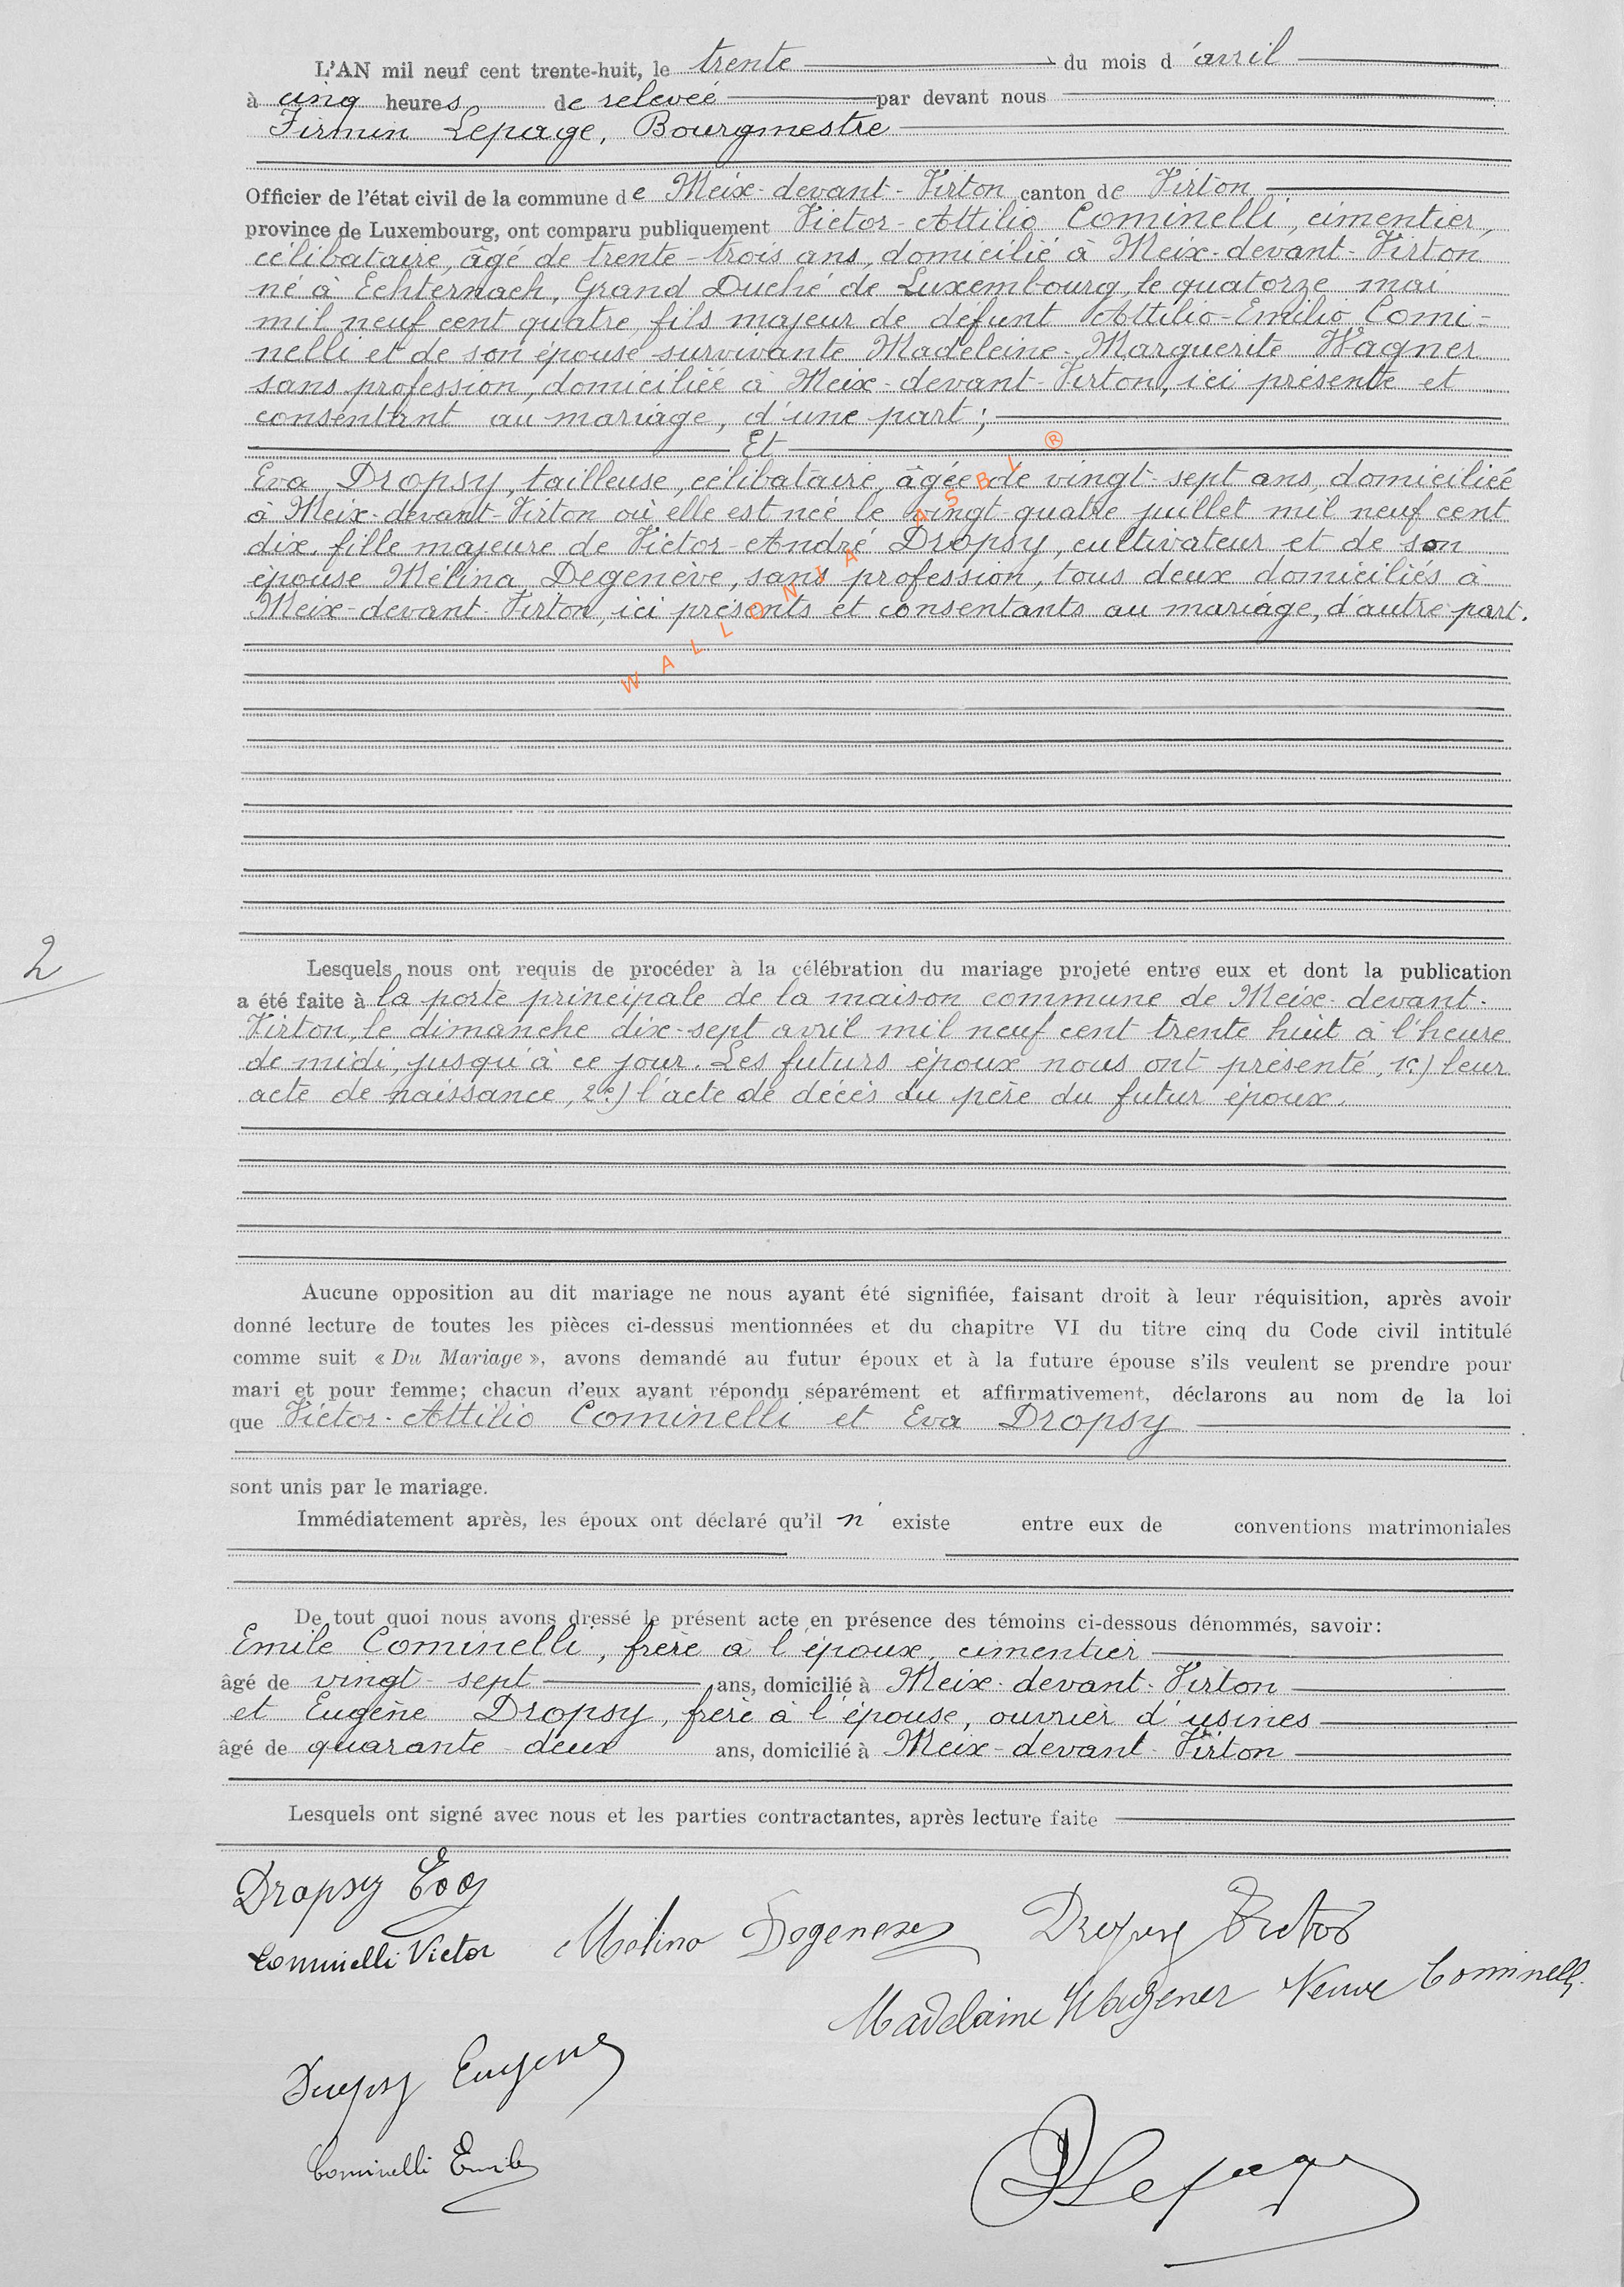 L'AN mil neuf cent trente-huit, le trente du mois d'avril
à cinq heures de relevée par devant nous
Firmin Lepage, Bourgmestre
Officier de l'état civil de la commune de Meix-devant-Virton canton de Virton
province de Luxembourg, ont comparu publiquement Victor-Attilio Cominelli, cimentier,
célibataire, âgé de trente-trois ans, domicilié à Meix-devant-Virton
né à Echternach, Grand Duché de Luxembourg, le quatorze mai
mil neuf cent quatre, fils majeur de défunt Attilio-Emilio Comi-
nelli et de son épouse survivante Madeleine-Marguerite Wagner
sans profession, domiciliée à Meix-devant-Virton, ici présente et
consentant au mariage, d'une part;
Et
Eva Dropsy, tailleuse, célibataire, âgée de vingt-sept ans, domiciliée
à Meix-devant-Virton où elle est née le vingt-quatre juillet mil neuf cent
dix, fille majeure de Victor-André Dropsy, cultivateur et de son
épouse Mélina Degenève, sans profession, tous deux domiciliés à
Meix-devant-Virton, ici présents et consentants au mariage, d'autre part.
WALLONIA ASBL ®
2
Lesquels nous ont requis de procéder à la célébration du mariage projeté entre eux et dont la publication
a été faite à la porte principale de la maison commune de Meix-devant-
Virton, le dimanche dix-sept avril mil neuf cent trente huit à l'heure
de midi, jusqu'à ce jour. Les futurs époux nous ont présenté, 1e) leur
acte de naissance, 2e) l'acte de décès du père du futur époux.
Aucune opposition au dit mariage ne nous ayant été signifiée, faisant droit à leur réquisition, après avoir
donné lecture de toutes les pièces ci-dessus mentionnées et du chapitre VI du titre cinq du Code civil intitulé
comme suit « Du Mariage », avons demandé au futur époux et à la future épouse s'ils veulent se prendre pour
mari et pour femme; chacun d'eux ayant répondu séparément et affirmativement, déclarons au nom de la loi
que Victor-Attilio Cominelli et Eva Dropsy
sont unis par le mariage.
Immédiatement après, les époux ont déclaré qu'il n' existe entre eux de conventions matrimoniales
De tout quoi nous avons dressé le présent acte en présence des témoins ci-dessous dénommés, savoir:
Emile Cominelli, frère à l'époux, cimentier
âgé de vingt-sept ans, domicilié à Meix-devant-Virton
et Eugène Dropsy, frère à l'épouse, ouvrier d'usines
âgé de quarante-deux ans, domicilié à Meix-devant-Virton
Lesquels ont signé avec nous et les parties contractantes, après lecture faite
Dropsy Eva
Cominelli Victor
Mélina Degeneve
Dropsy Victor
Madelaine Wagener Veuve Cominelli
Dropsy Eugène
Cominelli Emile
Lepage